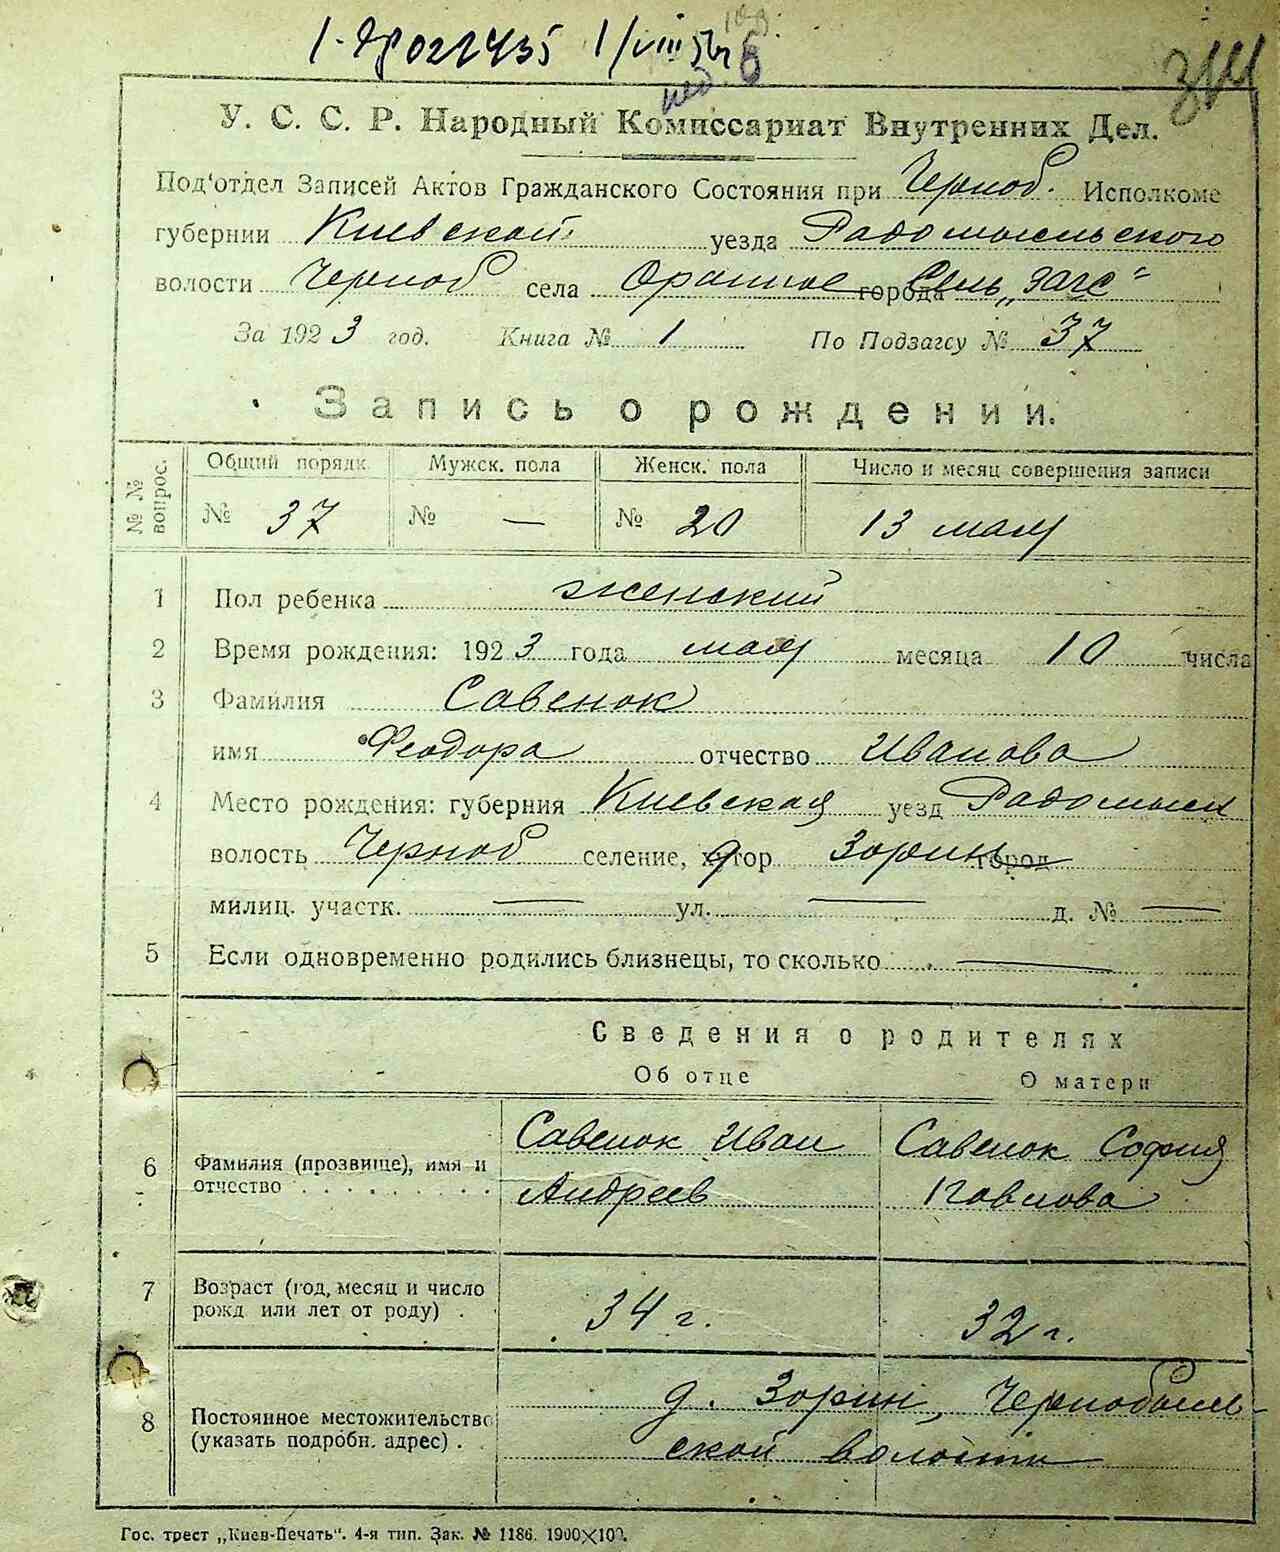 1/VIII 57г
314
У. С. С. Р. Народный Комиссариат Внутренних Дел.
Под'отдел Записей Актов Гражданского Состояния при Черноб. Исполкоме
губернии Киевской уезда Радомысльского
волости Черноб села Оранное города Сель „Загс"
За 1923 год. Книга № 1 По Подзагсу № 37
Запись о рождении.
№ № вопрос. Общий порядк. Мужск. пола Женск. пола Число и месяц совершения записи
№ 37 № — № 20 13 мая
1 Пол ребенка женский
2 Время рождения: 1923 года мая месяца 10 числа
3 Фамилия Савенок
имя Феодора отчество Иванова
4 Место рождения: губерния Киевская уезд Радомысл
волость Черноб селение, хутор д Зорин город
милиц. участк. — ул. — д. № —
5 Если одновременно родились близнецы, то сколько —
Сведения о родителях
Об отце О матери
Савенок Иван Савенок София
6 Фамилия (прозвище), имя и
отчество Андреев Павлова
7 Возраст (год, месяц и число
рожд или лет от роду) 34 г. 32 г.
д. Зорин, Чернобыль-
8 Постоянное местожительство
(указать подробн. адрес) ской волости
Гос. трест „Киев-Печать". 4-я тип. Зак. № 1186. 1900×100.